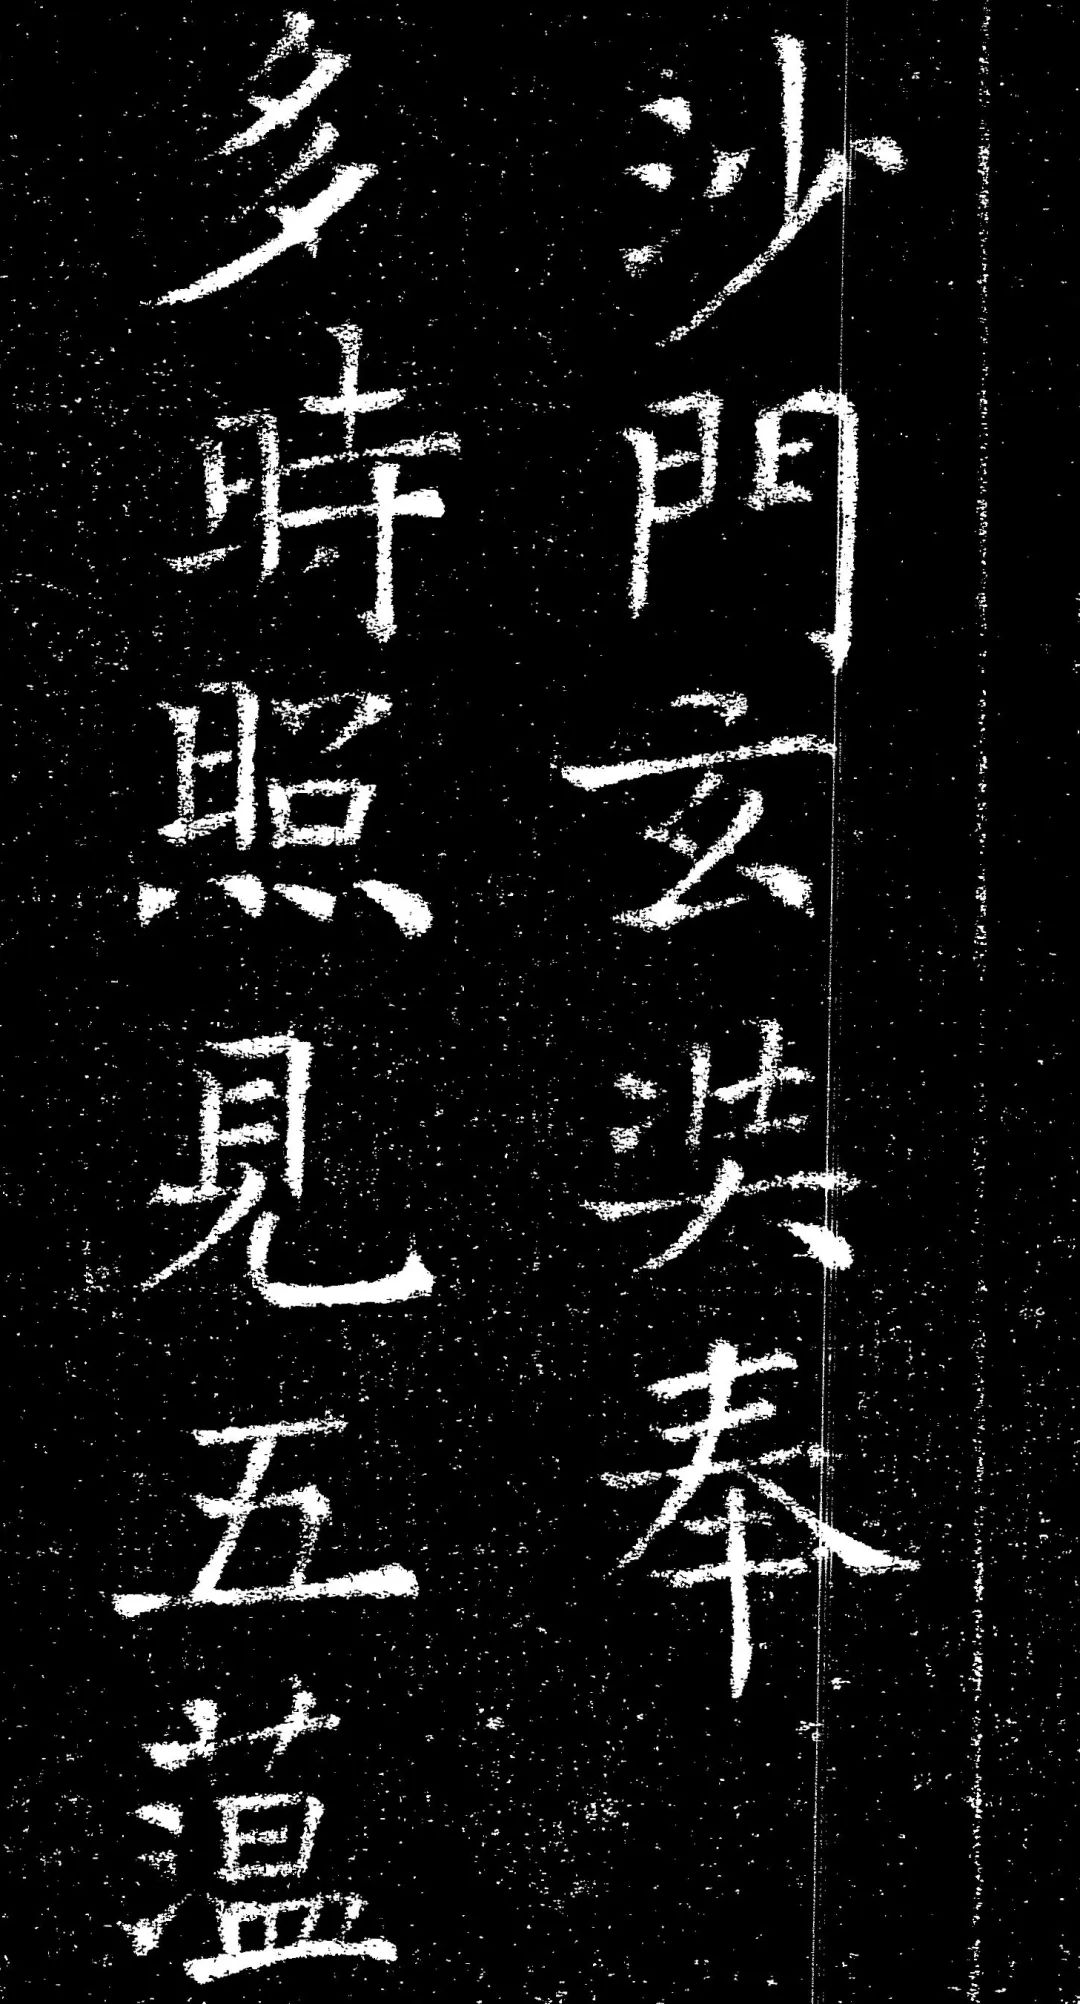 沙門玄奘奉
多時照見五蕰